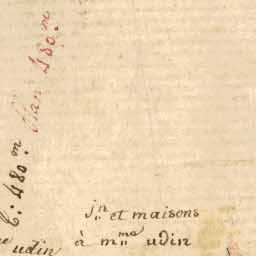 480.m
C: 480.m
j.n et maisons
à m.me udin
udin